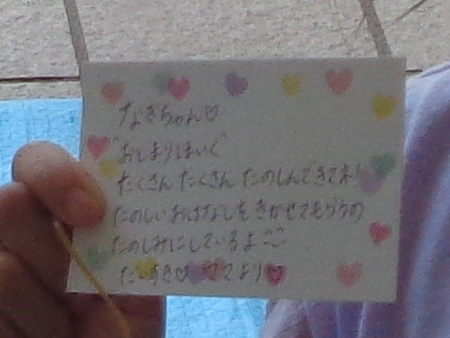 なぎちゃん♡
"おとまりほいく"
たくさん たくさん たのしんできてネ!
たのしい おはなしを きかせてもらうの
たのしみにしているよ
だいすき♡ ママより♡